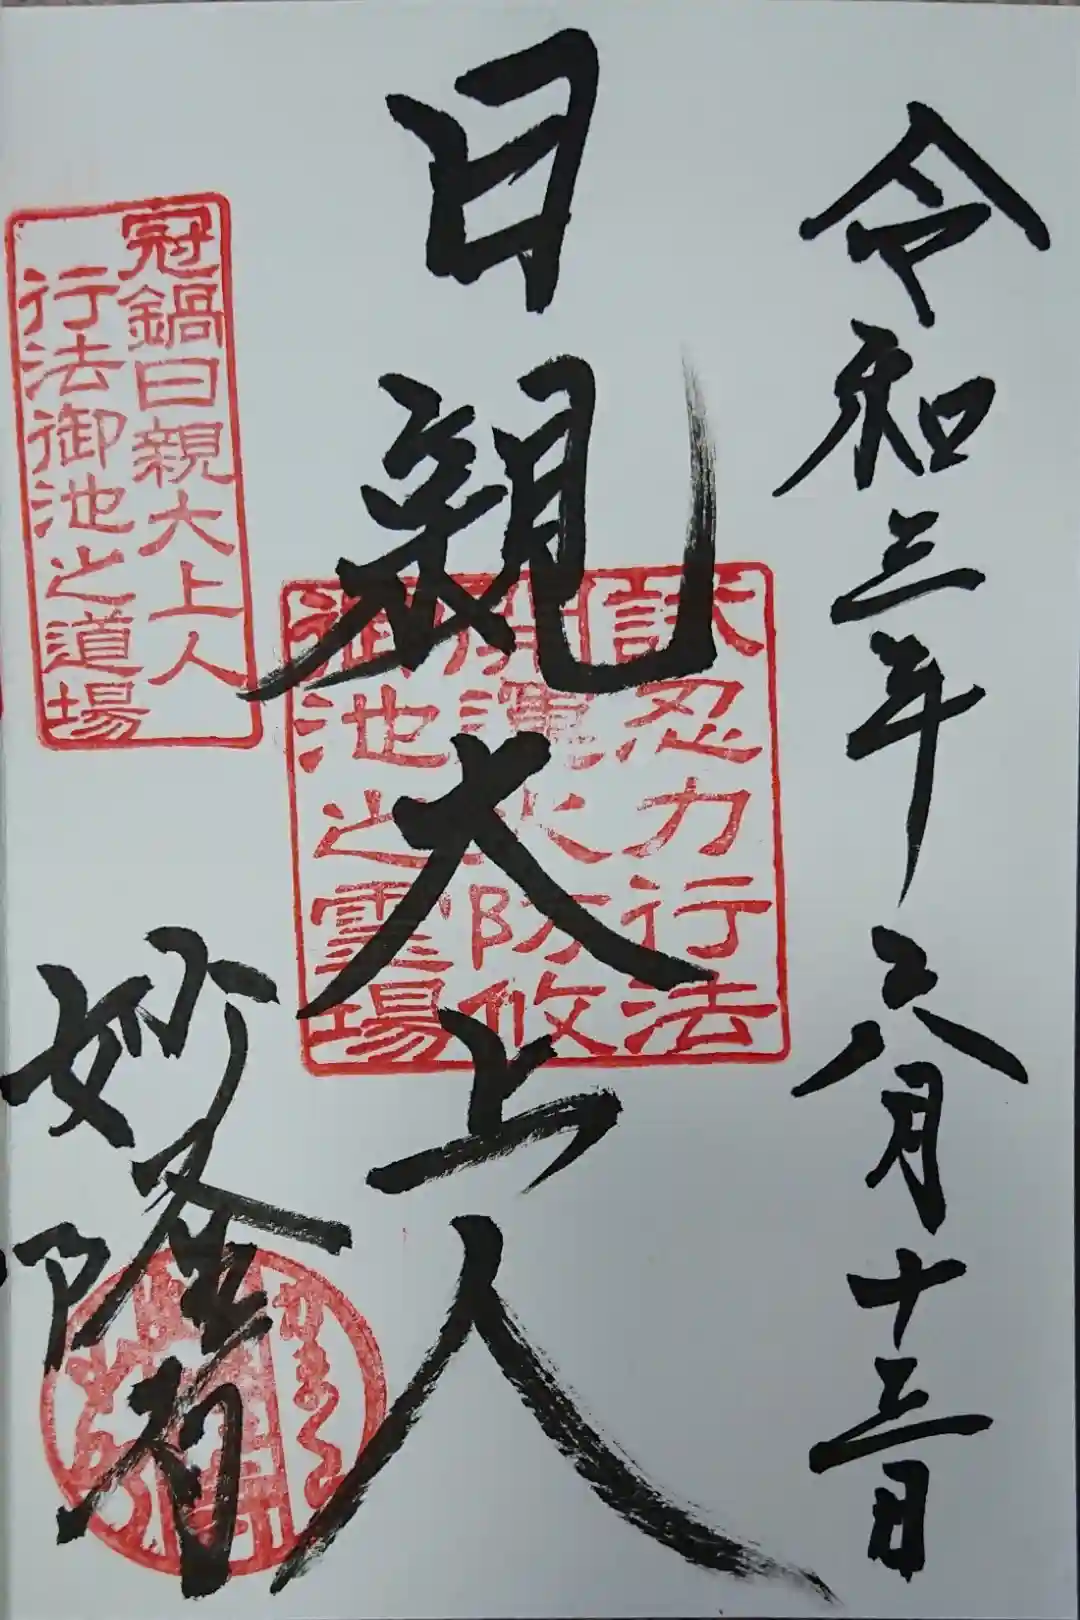 令和三年六月十三日
日親大上人
試忍力行法
開運火防攸
御池之霊場
冠鍋日親大上人
行法御池之道場
妙隆寺